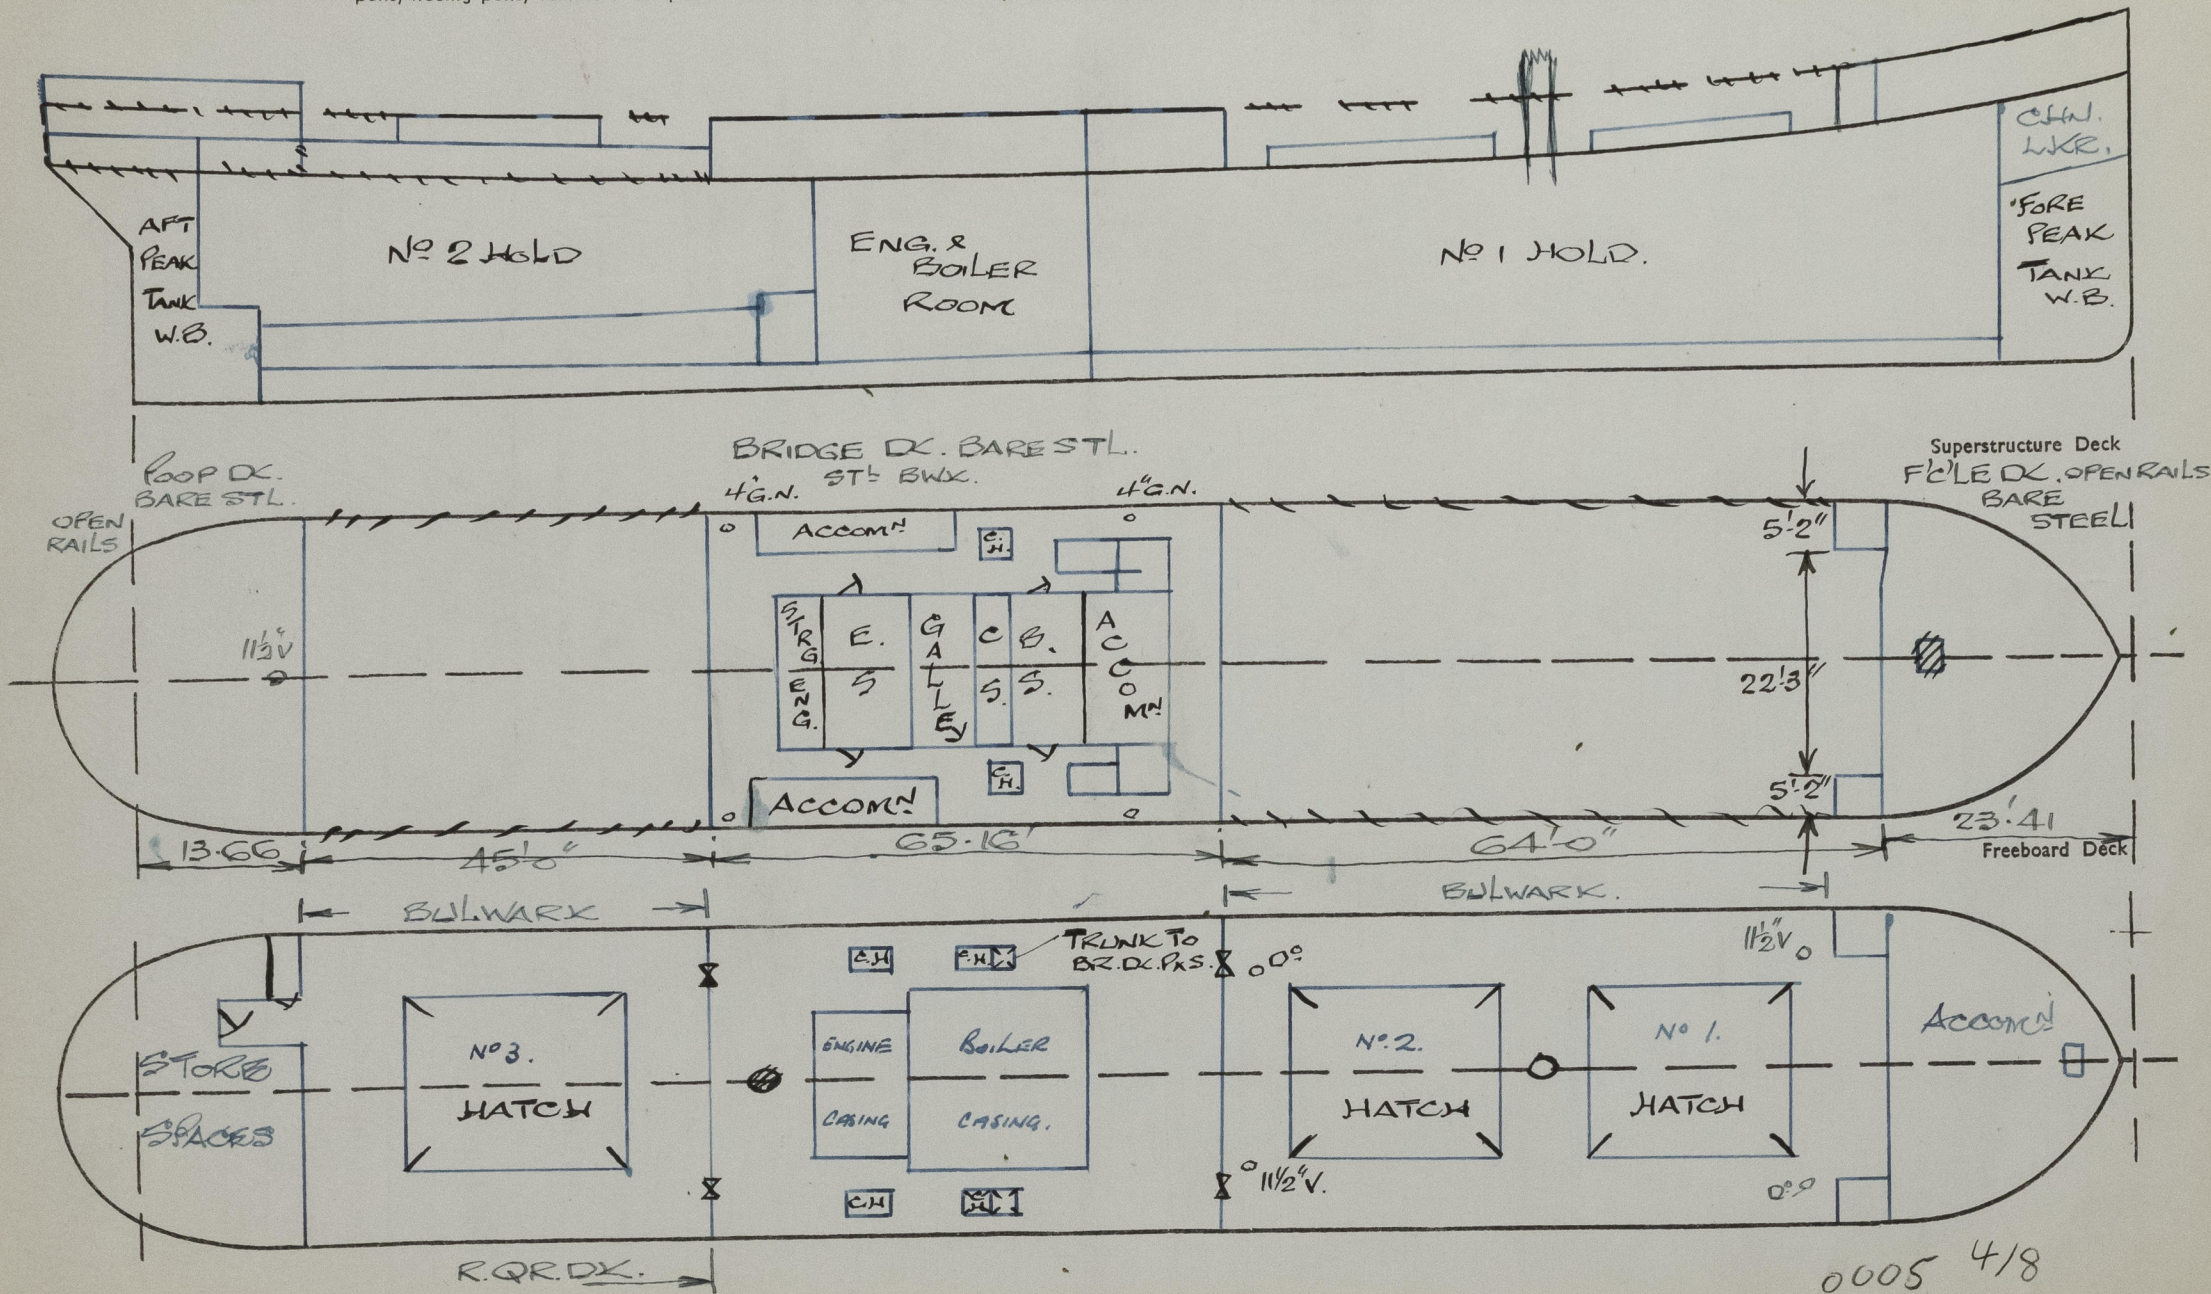 AFT
PEAK
TANK
W.B.
No 2 HOLD
ENG. &
BOILER
ROOM
No 1 HOLD.
CHN.
LKR.
FORE
PEAK
TANK
W.B.
POOP DK.
BARE STL.
OPEN
RAILS
BRIDGE DK. BARE STL.
STL BWK.
4" G.N.
4" G.N.
Superstructure Deck
F'C'LE DK. OPEN RAILS
BARE
STEEL
ACCOMN
C.H.
5'-2"
11½"V
STRG ENG.
E.S
GALLEY
C S.
B.S.
ACCOMN
22'3"
ACCOMN
C.H.
5'-2"
13.66
45'-0"
65.16'
64'-0"
23.41
Freeboard Deck
BULWARK
BULWARK.
C.H
C.H
TRUNK TO
BR. DK. P&S.
11½"V
STORE
SPACES
No 3.
HATCH
ENGINE
CASING
BOILER
CASING.
No. 2.
HATCH
No 1.
HATCH
ACCOMN
C.H
C.H
11½"V.
R.QR.DK.
0005 4/8